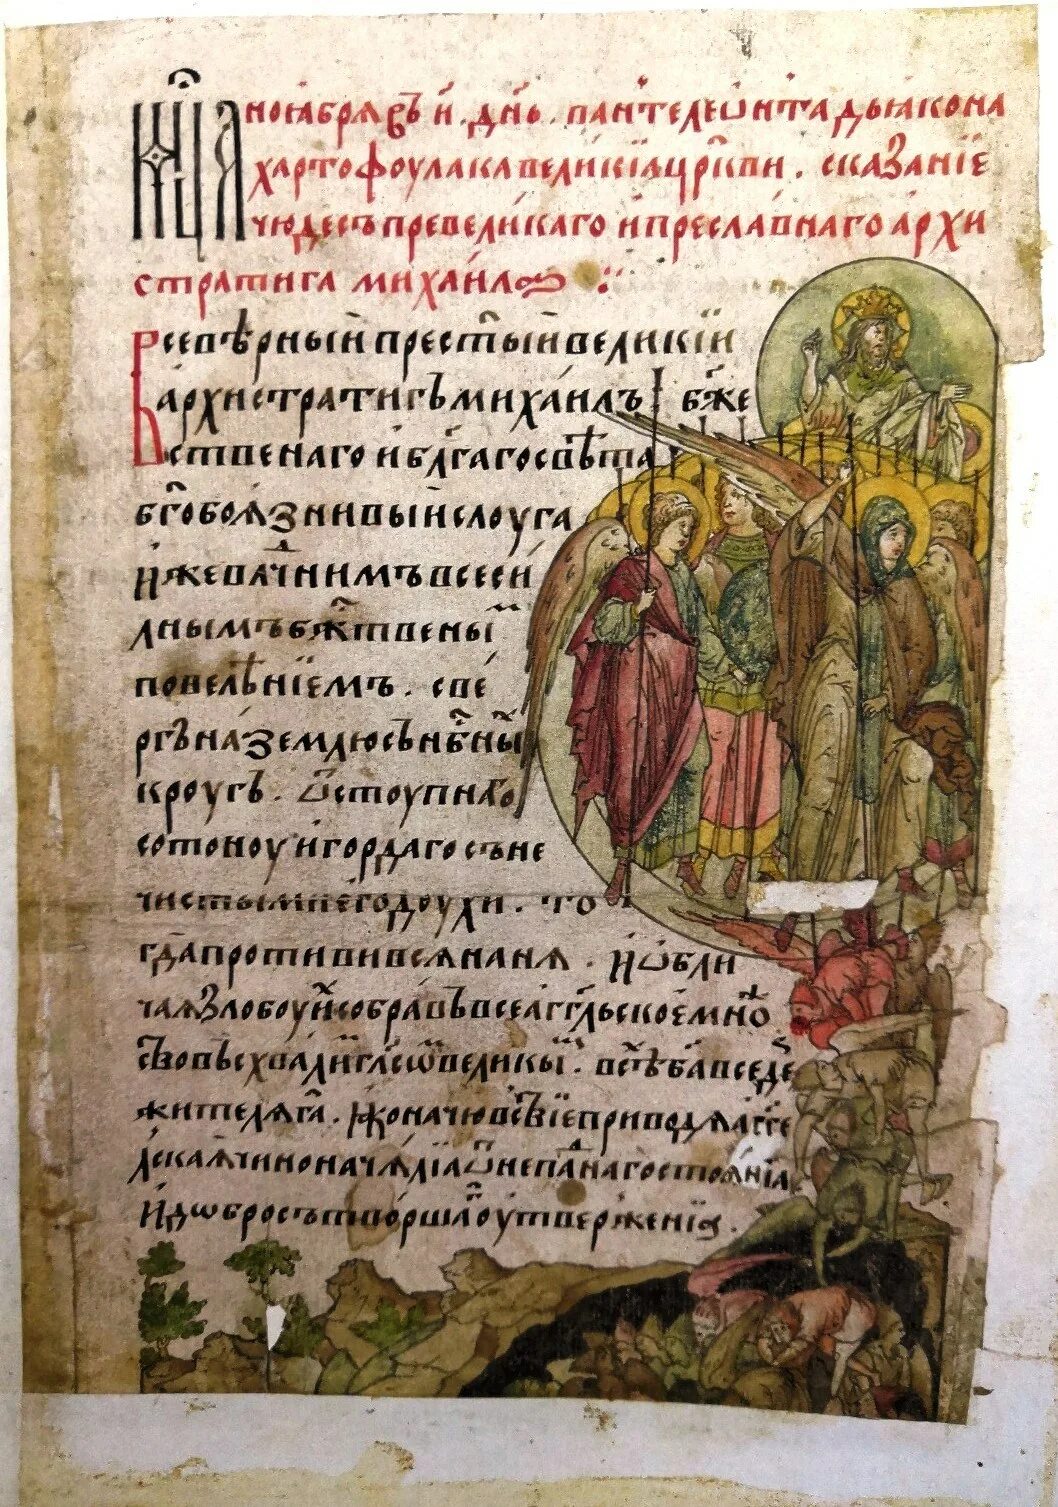 мц҃а ноꙗбря въ и҃. дн҃ь. пантелеѡнта дьꙗкона
хартофоулака великїꙗ цр҃кви. сказанїе
чюдесъ превеликаго и преславнаго архи
стратига михаила
Всевѣрныи прест҃ыи великїи
архистратигъ михаилъ. бж҃е
ственаго и бл҃гаго свѣта
бг҃обоязнивыи слоуга
иже вл҃чнимъ всеси
лнымъ бж҃твены
повелѣнїемъ. све
ргъ на землю съ нб҃ны
кроугъ. ѿстоупнаго
сотоноу и гордаго съ не
чистыми его доухи. то
гда противився на ня. и ѡбли
чая злобоу и собравъ все агг҃льское мно
ство въсхвали гласѡ великы. всѣ бл҃а вседе
жителя га҃. ико начювствїе приводя агг҃е
лская чиноначялїа ѿ непа нагостоянїа
и дѡбро сътвори шлоутверженїа.